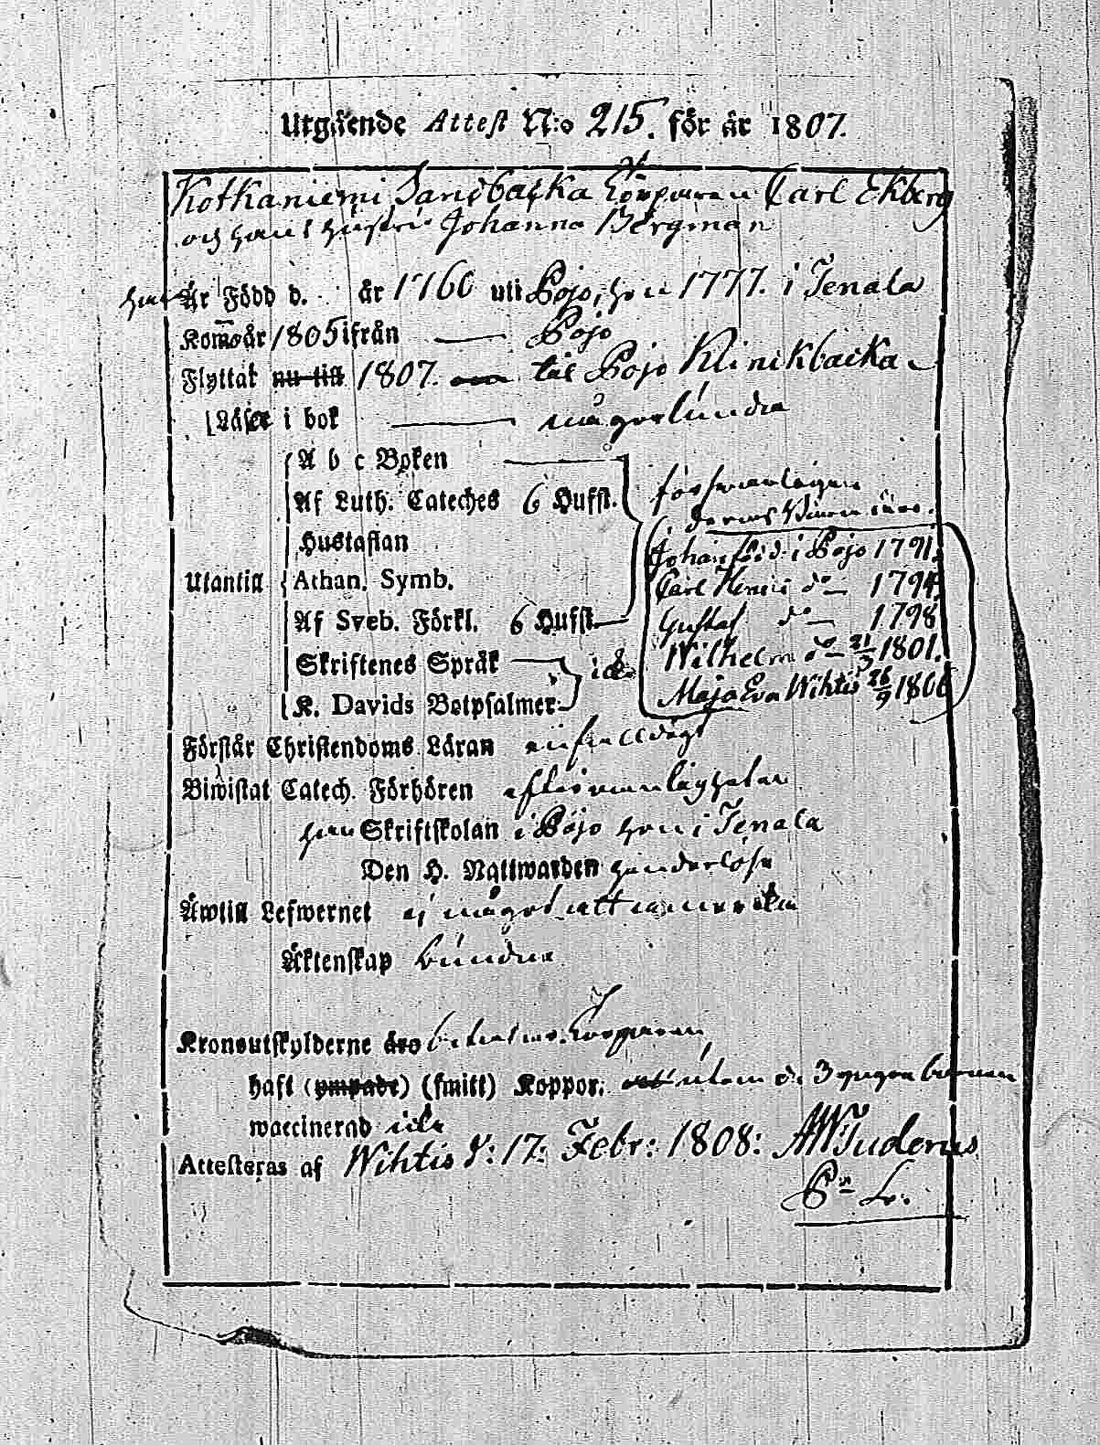 Utgående Attest N:o 215. för år 1807.
Kotkaniemi Carl Ekberg
och hans hustru Johanna Bergman
han Är Född d. år 1760 uti Pojo, hon 1777. i Tenala
Kom̄o år 1805 ifrån — Pojo
Flyttat nu till 1807. til Pojo Klinkbacka
Läser i bok — någorlunda
A b c Boken —
Af Luth. Cateches 6 Hufst. försvarligen
deras Barn äro.
Hustaflan Johan född i Pojo 1791.
Utantill Athan. Symb. Carl Henric do — 1794.
Af Sveb. Förkl. 6 Hufst. Gustaf do — 1798
Skriftenes Språk — icke Wilhelm do — 21/3 1801.
K. Davids Botpsalmer Maja Eva Wihtis 26/9 1806
Förstår Christendoms Läran enfaldigt
Biwistat Catech. Förhören efter vanligheten
han Skriftskolan i Pojo hon i Tenala
Den H. Nattwarden hinderlöst
Äwtill Lefwernet ej något att anmärka
Äktenskap bundne
Kronoutskylderne äro betalne.
haft (ympade) (smitt) Koppor. utom de 3 yngre barnen
waccinerad icke
Attesteras af Wihtis d: 17: Febr: 1808: AWTuderus